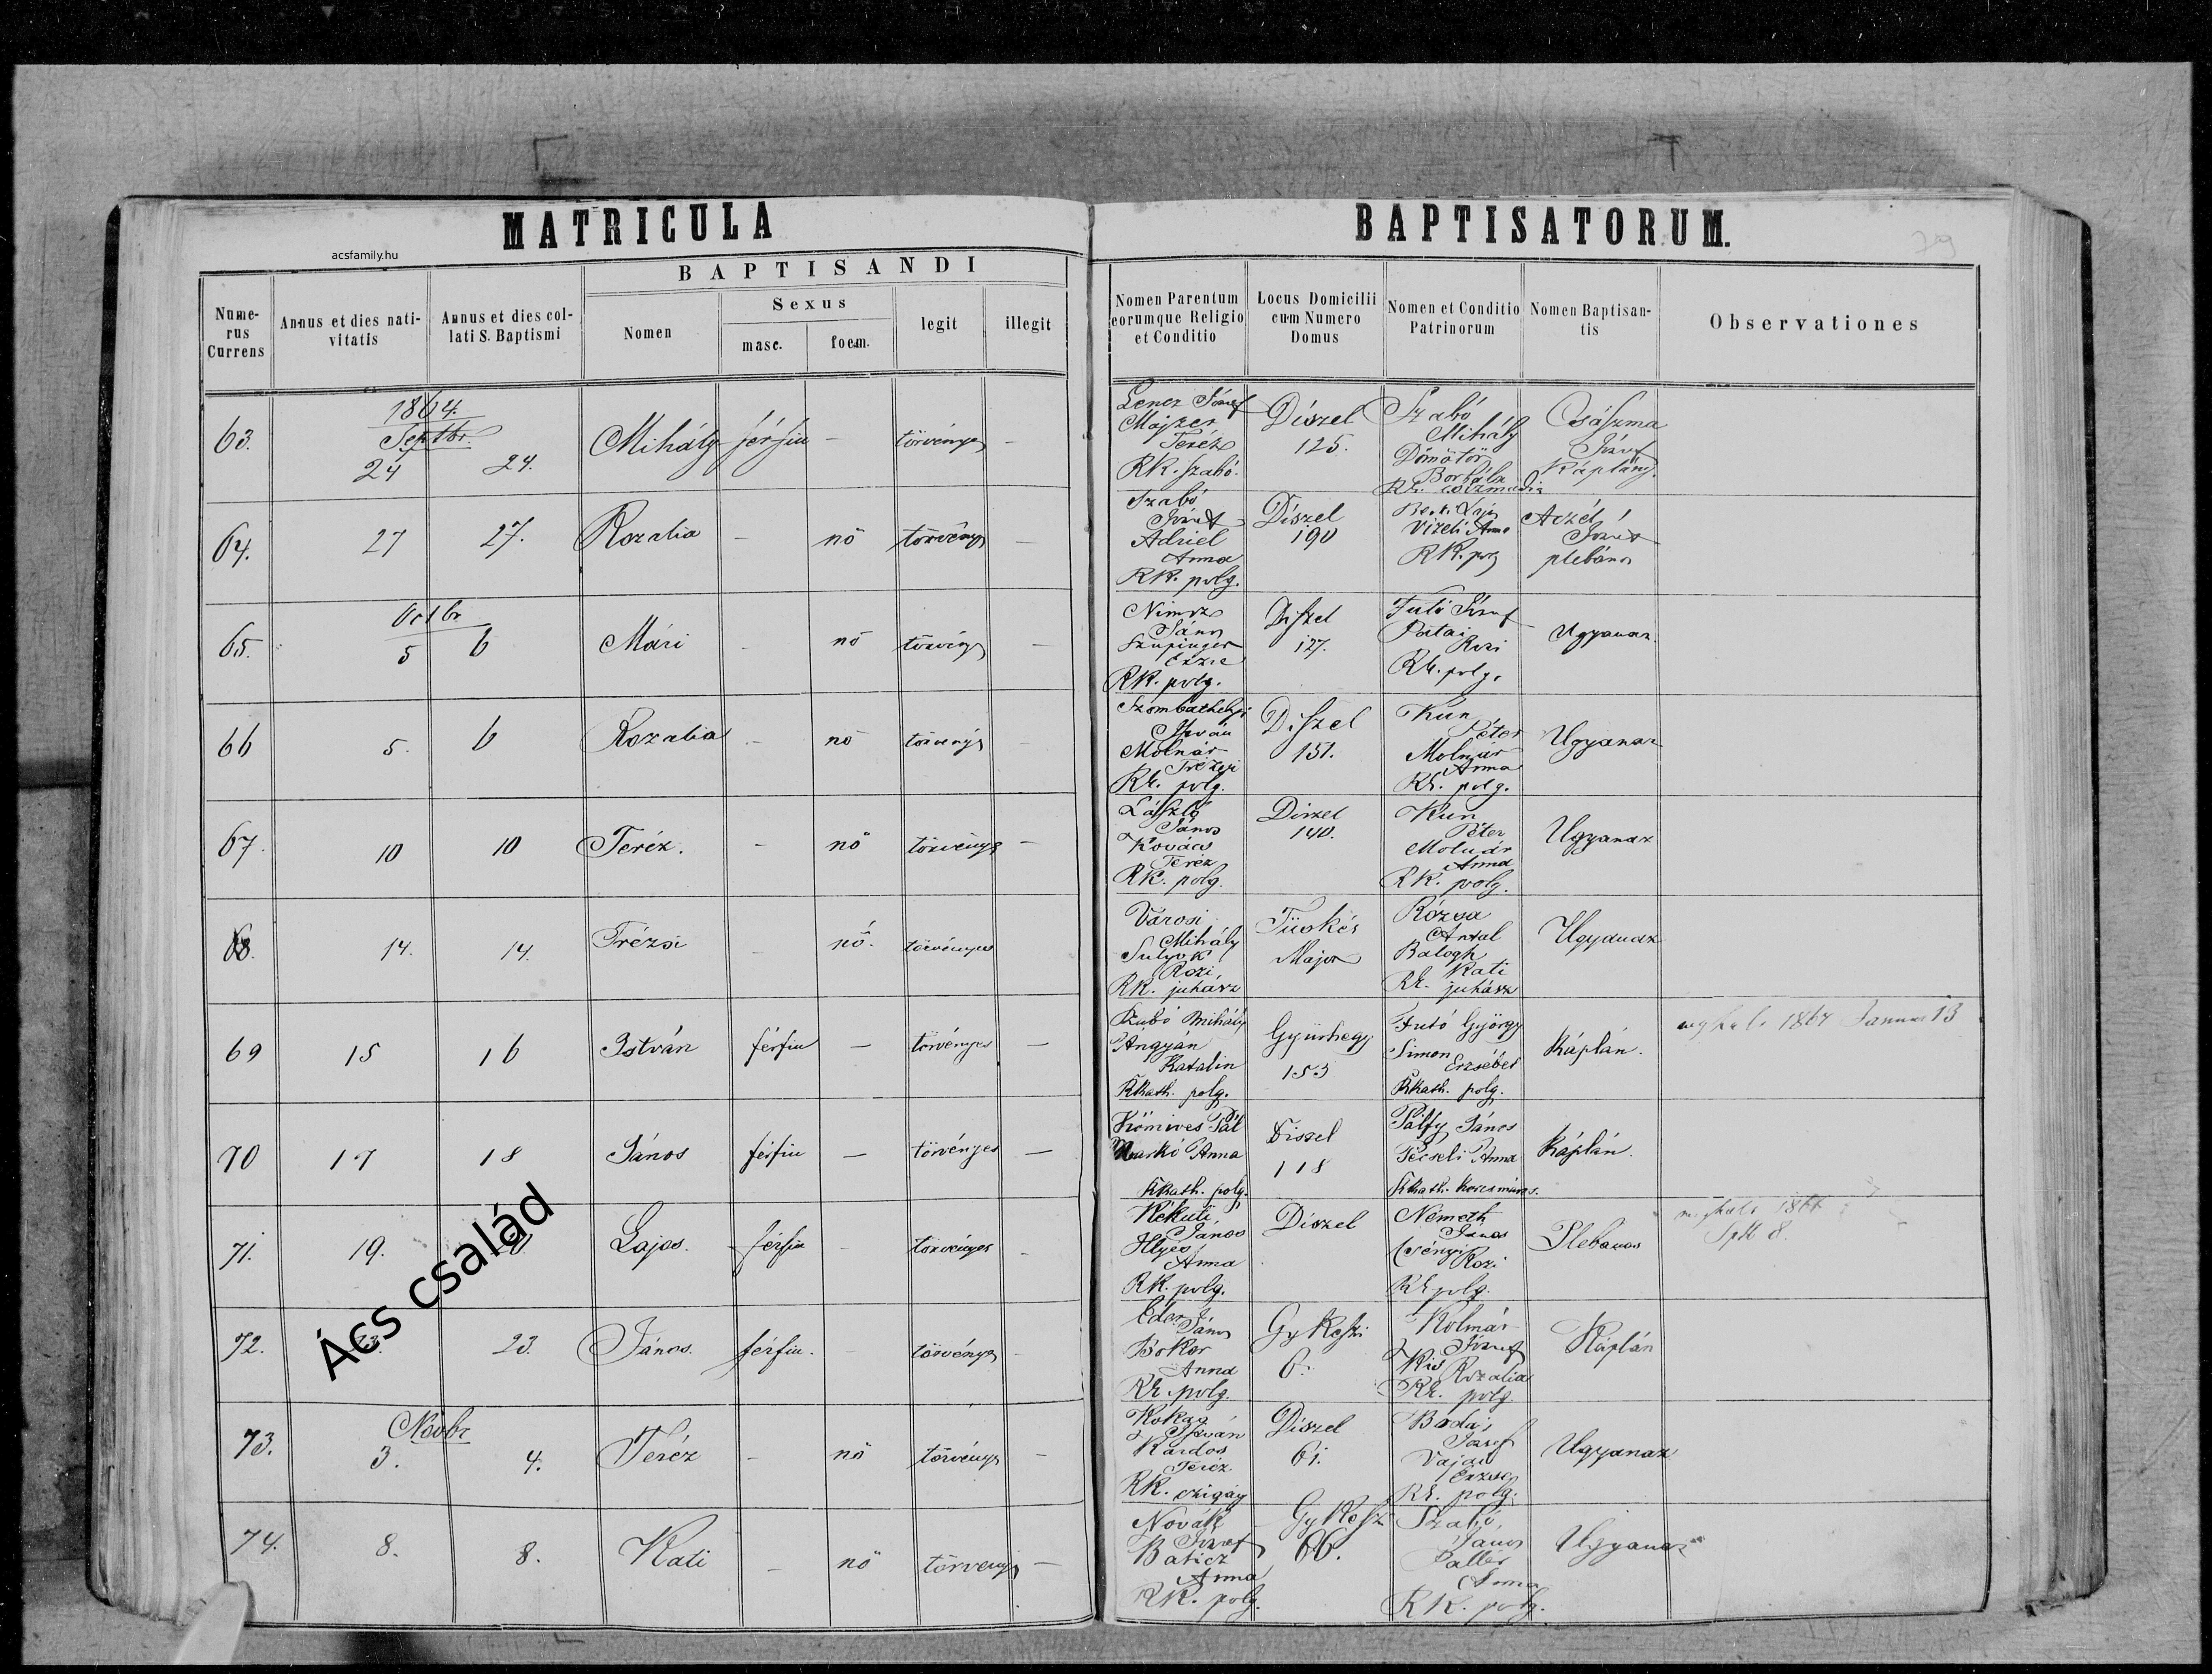 MATRICULA
BAPTISATORUM.
acsfamily.hu
Numerus Currens
Annus et dies nativitatis
Annus et dies collati S. Baptismi
BAPTISANDI
Nomen
Sexus
masc.
foem.
legit
illegit
Nomen Parentum eorumque Religio et Conditio
Locus Domicilii cum Numero Domus
Nomen et Conditio Patrinorum
Nomen Baptisantis
Observationes
1864.
Septbr
63.
24
24.
Mihály
férfiu
—
törvényes
—
Lencz József
Majzer
Teréz
RK. szabó.
Díszel
125.
Szabó
Mihály
Dömötör
Borbála
József
Káplány.
64.
27
27.
Rozalia
—
nö
törvényes
—
Szabó
József
Adriel
Anna
RK. polg.
Díszel
190
Vizeli Anna
RK. polg
Aczél
József
plebános
Octbr
65.
5
6
Mári
-
nö
törvénys
—
János
RK. polg.
Diszel
127.
Futó József
Patai
Rozi
Rk. polg.
Ugyanaz.
66
5.
6
Rozalia
-
nö
törvénys
—
Szombathelyi
István
Molnár
Trézsi
Rk. polg.
Diszel
151.
Kun
Péter
Molnár
Anna
Rk. polg.
Ugyanaz
67.
10
10
Teréz.
-
nö
törvénys
—
László
János
Kovács
Teréz
RK. polg.
Diszel
140.
Kun
Péter
Molnár
Anna
RK. polg.
Ugyanaz
68.
14.
14.
Trézsi
-
nö.
törvényes
Városi
Mihály
Sulyok
Rozi,
RK. juhász
Tüskés
Major
Rózsa
Antal
Balogh
Kati
Rk. juhász
Ugyanaz
69
15
16
István
férfiu
—
törvényes
—
Szabó Mihály
Angyán
Katalin
Rkath. polg.
Gyürhegy
153
Futó György
Simon
Erzsébet
Rkath. polg.
Káplán.
meghalt 1867 Januar 13
70
17
18
János
férfiu
—
törvényes
—
Kömives Pál
Markó Anna
Rkath. polg.
Diszel
118
Pálfy János
Pécseli Anna
Rkath. korcsmáros.
Káplán.
71.
19.
Lajos.
férfiu
-
törvényes
-
Kékuti,
János
Illyés
Anna
RK. polg.
Diszel
Németh
János
Rozi
Rk polg.
Plebanos
meghalt
Sptb 8.
72.
23.
23.
János.
férfiu.
-
törvényes
-
Éder
János
Bokor
Anna
Rk. polg.
Gy Keszi
6.
Kolmár
József
Kis
Rozalia
Rk. polg
Káplán
Novbr
73.
3.
4.
Teréz
-
nö
törvénys
—
Kokas
István
Kardos
Teréz
RK. czigány
Diszel
61.
József
Vajda
Rk. polg.
Ugyanaz
74.
8.
8.
Kati
-
nö
törvénys
—
Novák
József
Baticz
Anna
RK. polg.
Gy Keszi
66.
Szabó,
János
Paller
Anna
RK. polg.
Ugyanaz
Ács család